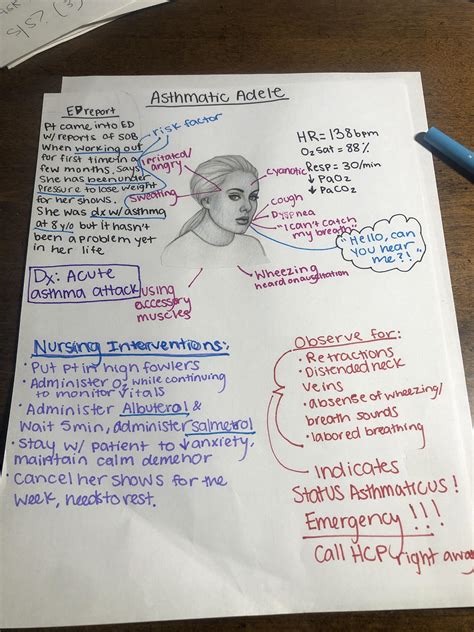 Asthmatic Adele
ED report
Pt came into ED
w/ reports of SOB
When working out
for first time in a
few months, says
She has been under
pressure to lose weight
for her shows.
She was dx w/ asthma
at 8 y/o but it hasn't
been a problem yet
in her life
risk factor
irritated/
angry
sweating
HR = 138 bpm
O2 sat = 88%
Resp = 30/min
↓ PaO2
↓ PaCO2
cyanotic
cough
Dyspnea
"I can't catch
my breath"
"Hello, can
you hear
me?!"
Wheezing
heard on auscultation
using
accessory
muscles
Dx: Acute
asthma attack
Nursing Interventions:
• Put pt in high fowlers
• Administer O2 while continuing
to monitor vitals
• Administer Albuterol &
Wait 5 min, administer salmetrol
• stay w/ patient to ↓ anxiety,
maintain calm demenor
• Cancel her shows for the
week, needs to rest.
Observe for:
• Retractions
• Distended neck
veins
• absense of wheezing/
breath sounds
• labored breathing
Indicates
Status Asthmaticus!
Emergency!!!
Call HCP right away